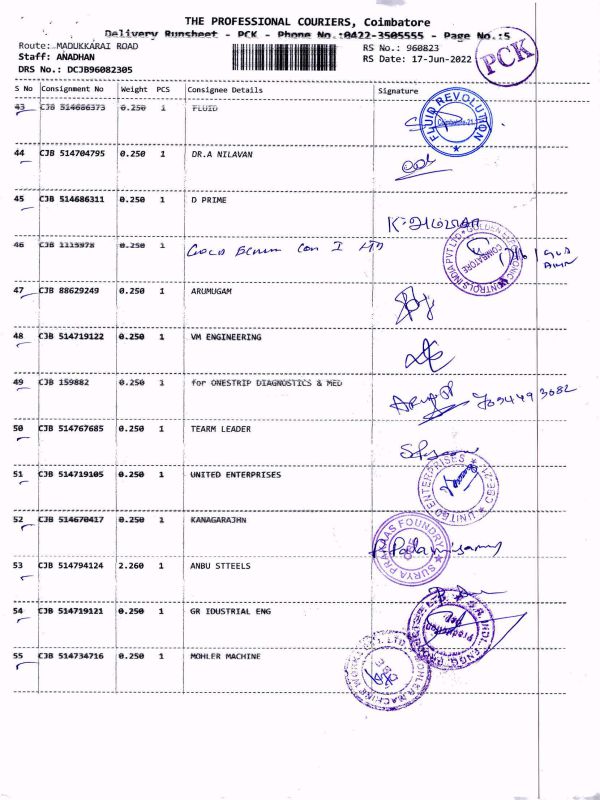 THE PROFESSIONAL COURIERS, Coimbatore
Delivery Runsheet - PCK - Phone No.:0422-3505555 - Page No.:5
Route: MADUKKARAI ROAD
RS No.: 960823
Staff: ANADHAN
RS Date: 17-Jun-2022
DRS No.: DCJB96082305
PCK
S No Consignment No Weight PCS Consignee Details Signature
43 CJB 514686373 0.250 1 FLUID
FLUID REVOLUTION
Coimbatore-21
44 CJB 514704795 0.250 1 DR.A NILAVAN
45 CJB 514686311 0.250 1 D PRIME
46 CJB 1115978 0.250 1
GOLDEN ELECTRONIC CONTROLS INDIA PVT LTD
COIMBATORE
47 CJB 88629249 0.250 1 ARUMUGAM
48 CJB 514719122 0.250 1 VM ENGINEERING
49 CJB 159882 0.250 1 for ONESTRIP DIAGNOSTICS & MED
50 CJB 514767685 0.250 1 TEARM LEADER
51 CJB 514719105 0.250 1 UNITED ENTERPRISES
UNITED ENTERPRISES CBE-21
52 CJB 514670417 0.250 1 KANAGARAJHN
SURYA FOUNDRY
P. Palanisamy
53 CJB 514794124 2.260 1 ANBU STTEELS
54 CJB 514719121 0.250 1 GR IDUSTRIAL ENG
55 CJB 514734716 0.250 1 MOHLER MACHINE
MOHLER MACHINE WORKS PVT. LTD